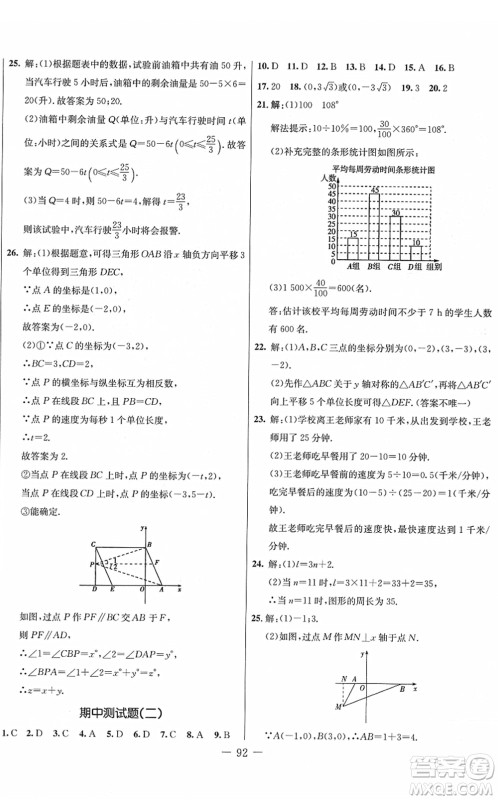 25. 解:(1)根据题表中的数据,试验前油箱中共有油 50 升,
当汽车行驶 5 小时后,油箱中的剩余油量是 50－5×6＝
20(升). 故答案为 50;20.
(2)油箱中的剩余油量 Q(单位:升)与行驶时间 t(单位:
小时)之间的关系式是 Q＝50－6t(0⩽t⩽25/3). 故答
案为 Q＝50－6t(0⩽t⩽25/3).
(3)当 Q＝4 时,t＝23/3,
则该试验中,汽车行驶 23/3 小时将会报警.
26. 解:(1)根据题意,可得三角形 OAB 沿 x 轴负方向平移 3
个单位得到三角形 DEC,
∵点 A 的坐标是(1,0),
∴点 E 的坐标是(－2,0).
故答案为(－2,0).
(2)①∵点 C 的坐标为(－3,2),
∴BC＝3,CD＝2.
∵点 P 的横坐标与纵坐标互为相反数,
∴点 P 在线段 BC 上,
∴PB＝CD,即 t＝2.
∵点 P 的速度为每秒 1 个单位长度,
∴t＝2.
故答案为 2.
②当点 P 在线段 BC 上时,点 P 的坐标为(－t,2);
当点 P 在线段 CD 上时,点 P 的坐标为(－3,5－t).
③能确定.
y
C
B
P
1
2
F
D
E
O
A
x
如图,过点 P 作 PF∥BC 交 AB 于点 F,
则 PF∥AD,
∴∠1＝∠CBP＝x°,∠2＝∠DAP＝y°,
∴∠BPA＝∠1＋∠2＝x°＋y°＝z°,
∴z＝x＋y.
期中测试题(二)
1. C 2. D 3. D 4. C 5. D 6. C 7. B 8. A 9. B
10. D 11. D 12. D 13. C 14. D 15. B 16. A
17. 20 18. (0,3√3)或(0,－3√3) 19. 3 20. 2
21. 解:(1)100 108°
解法提示:10÷10％＝100,30/100×360°＝108°.
(2)补充完整的条形统计图如图所示:
平均每周劳动时间条形统计图
人数
45
30
15
10
A组 B组 C组 D组 组别
(3)1 500×40/100＝600(名).
答:估计该校平均每周劳动时间不少于 7 h 的学生人数
有 600 名.
22. 解:(1)A,B,C 三点的坐标分别为(0,3),(3,－3),(－2,
－2).
(2)先作△ABC 关于 y 轴对称的△AB′C′,再把△AB′C′
向上平移 5 个单位长度即可.(答案不唯一)
23. 解:(1)学校离王老师家有 10 千米,从出发到学校,王老
师用了 25 分钟.
(2)王老师吃早餐用了 20－10＝10(分钟).
(3)王老师吃早餐前的速度为 5÷10＝0.5(千米/分钟),
吃完早餐后的速度为(10－5)÷(25－20)＝1(千米/
分钟).
故王老师吃完早餐后的速度快,最快时速达到 1 千米/
分钟.
24. 解:(1)l＝3n＋2.
(2)当 n＝11 时,l＝3×11＋2＝33＋2＝35.
∴当 n＝11 时,图形的周长为 35.
25. 解:(1)－1;3.
(2)如图,过点 M 作 MN⊥x 轴于点 N.
y
N A
O
B
x
M
∵A(－1,0),B(3,0),∴AB＝1＋3＝4.
— 92 —